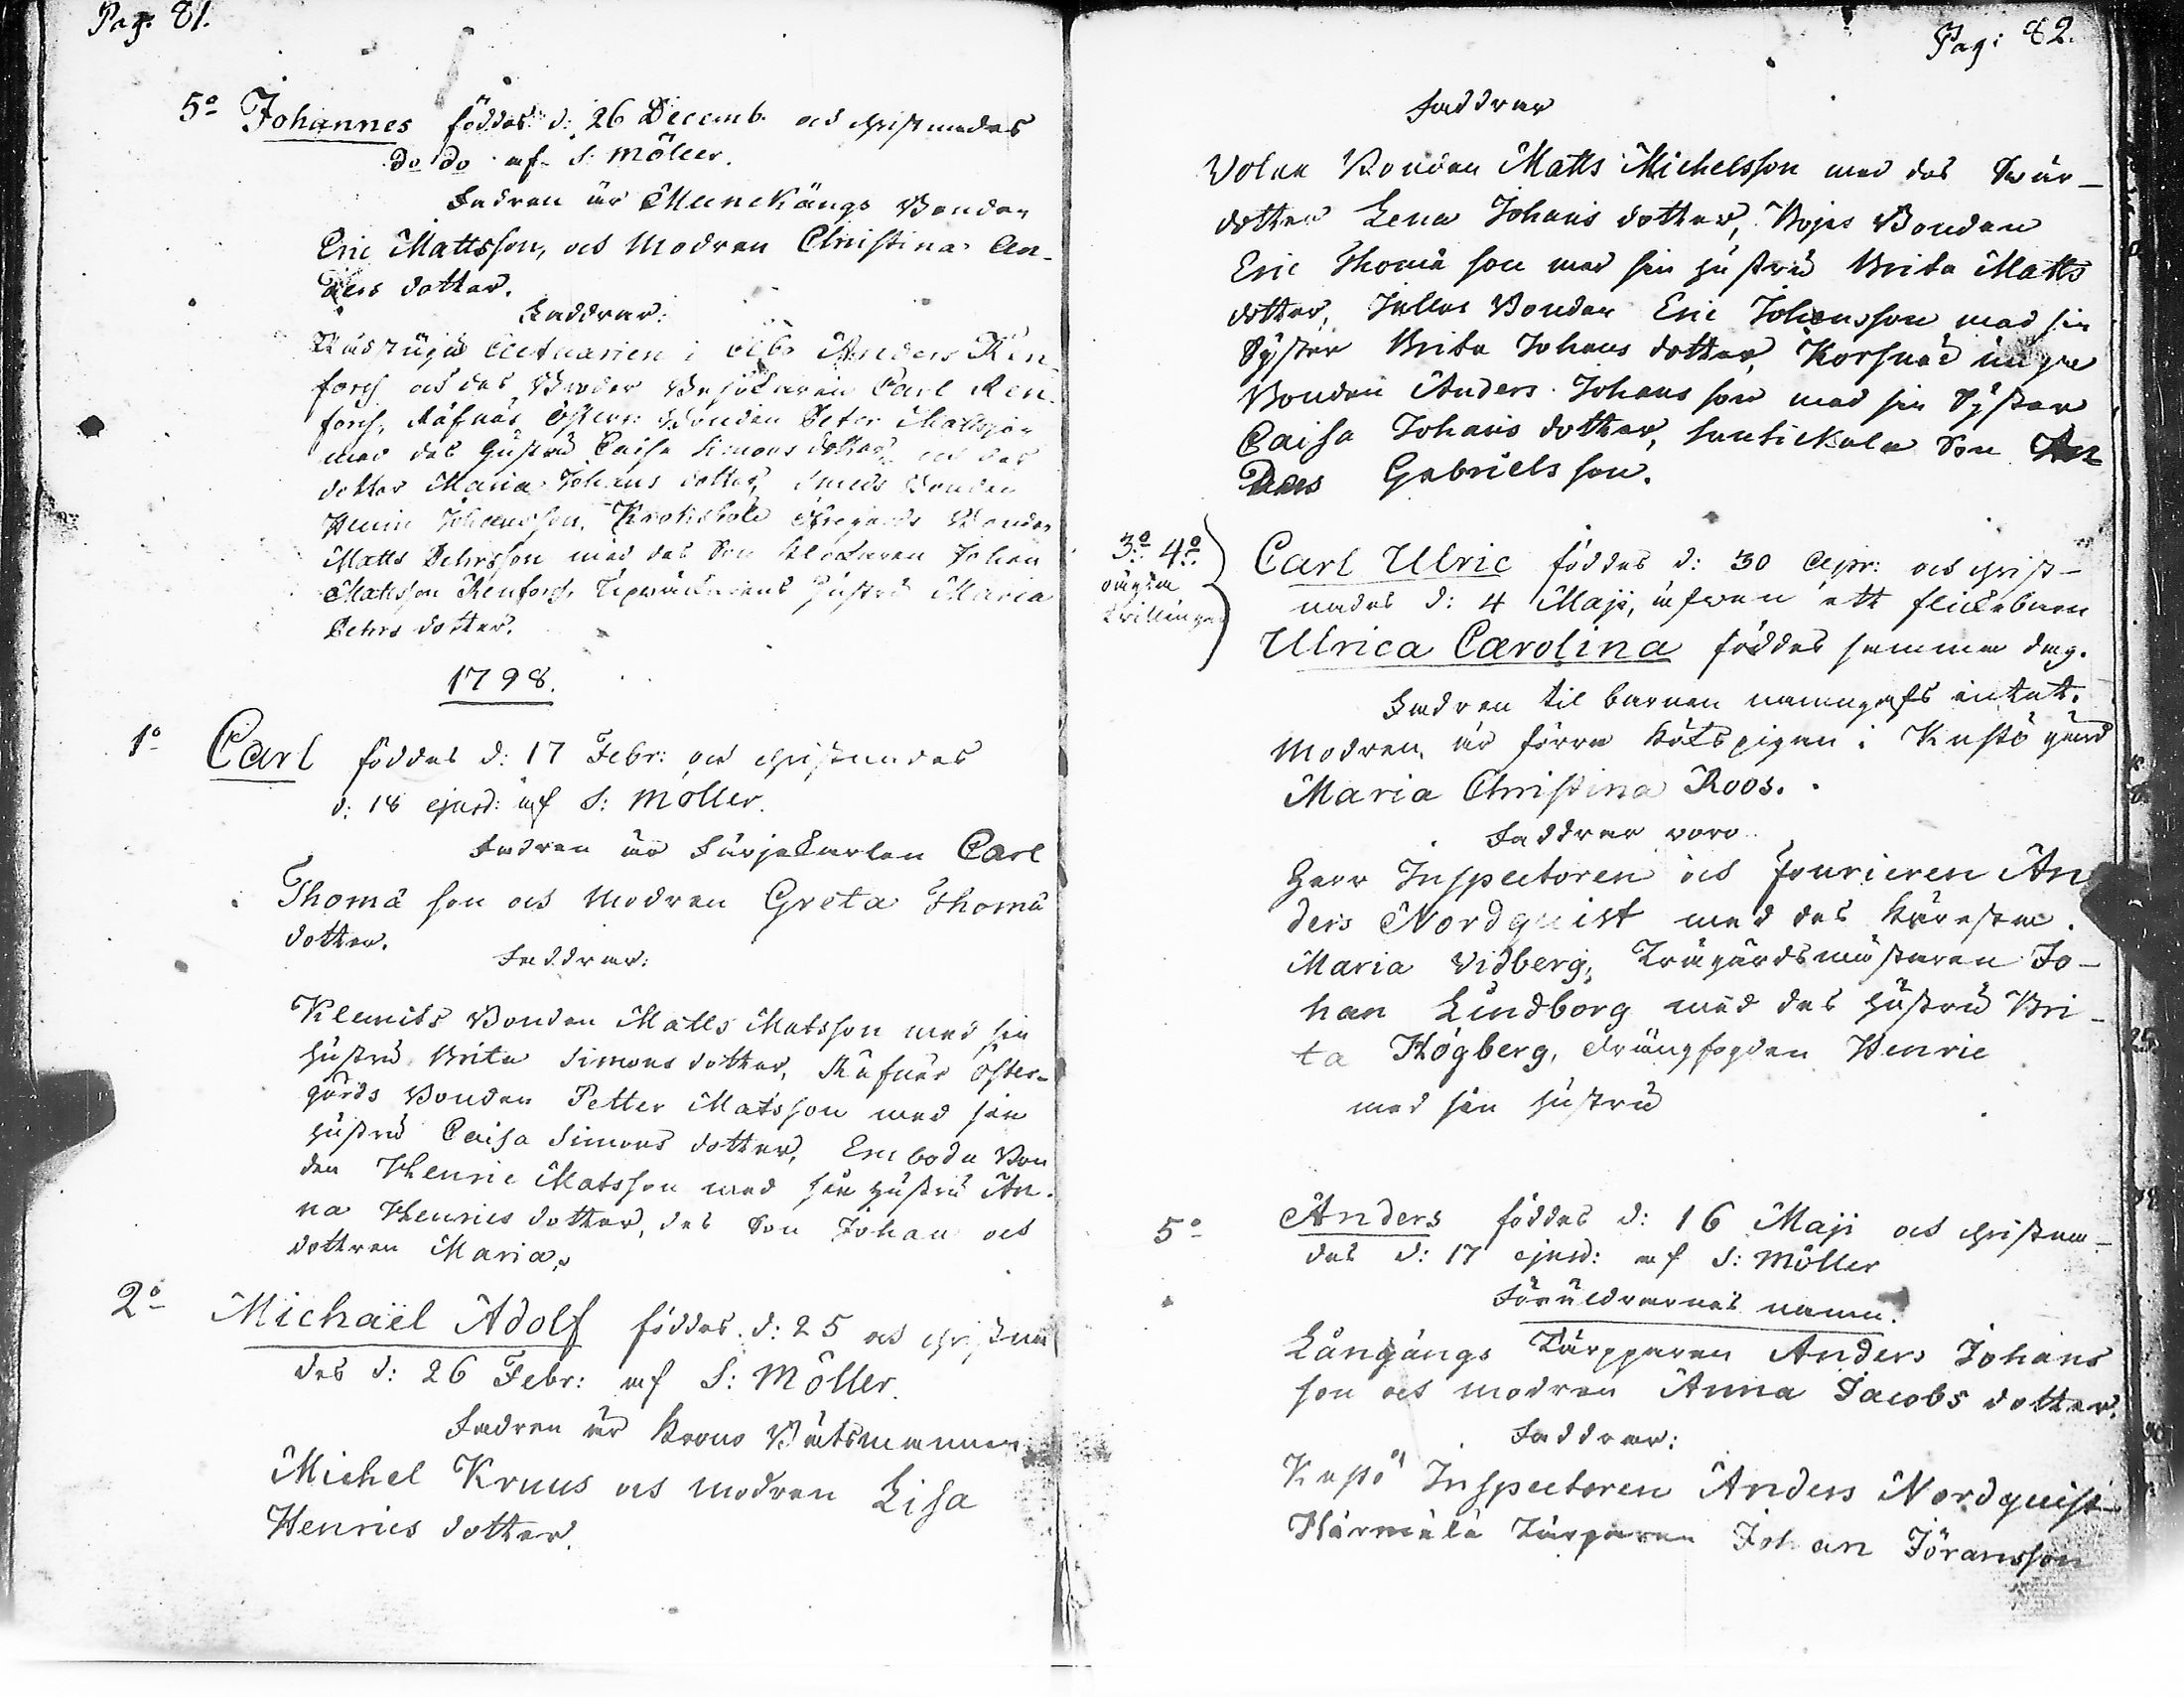 Pag: 81.
5º Johannes föddes d: 26 Decemb. och christnades
do do af S: Möller.
Fadren är Munckängs Bonden
Eric Mattsson, och Modren Christina An-
ders dotter.
Faddrar:
Actuarien i Åbo Anders Ren-
fors och des Broder Carl Ren-
fors, Räfnäs Östern: Bonden Peter Mattsson
med des Hustru Caisa Simons dotter, och des
dotter Maria Johans dotter, Smeds Bonden
Henric Johansson, Bonden
Matts Pehrsson med des Son Klockaren Johan
Matsson Renfors, Hustru Maria
Pehrs dotter.
1798.
1º Carl föddes d: 17 Febr: och christnades
d: 18 ejusd: af S: Möller.
Fadren är Färjekarlen Carl
Thomæ son och Modren Greta Thomæ
dotter.
Faddrar:
Klemets Bonden Matts Matsson med sin
hustru Brita Simons dotter, Räfnäs Öster-
gårds Bonden Petter Matsson med sin
hustru Caisa Simons dotter, Emboda Bon
den Henric Matsson med sin hustru An-
na Henrics dotter, des Son Johan och
dottren Maria.
2º Michaël Adolf föddes d: 25 och christna
des d: 26 Febr: af S: Möller.
Fadren är Krono Båtsmannen
Michel Kruus och modren Lisa
Henrics dotter.
Pag: 82.
Faddrar
Volax Bonden Matts Michelsson med des Svär-
dotter Lena Johans dotter, Böjes Bonden
Eric Thomæ son med sin hustru Brita Matts
dotter, Jullas Bonden Eric Johansson med sin
Syster Brita Johans dotter, Korsnäs
Bonden Anders Johans son med sin Syster
Caisa Johans dotter, Son An
ders Gabriels son.
3º: 4º.
oägta
tvillingar
Carl Ulric föddes d: 30 Apr: och christ-
nades d: 4 Maji, äfven ett flickebarn
Ulrica Carolina föddes samma dag.
Fadren til barnen namngafs intet.
Modren är förra Kökspigan i Kustö gård
Maria Christina Roos.
Faddrar voro
Herr Inspectoren och Fourieren An
ders Nordquist med des Käresta
Maria Vidberg, Trägårdsmästaren Jo-
han Lindborg med des hustru Bri-
ta Högberg, drängfogden Henric
med sin hustru
5º Anders föddes d: 16 Maji och christna-
des d: 17 ejusd: af S: Möller
Föräldrarnas namn.
Långängs Torpparen Anders Johans
son och modren Anna Jacobs dotter.
Faddrar:
Kustö Inspectoren Anders Nordquist
Härmälä Torparen Johan Jöransson